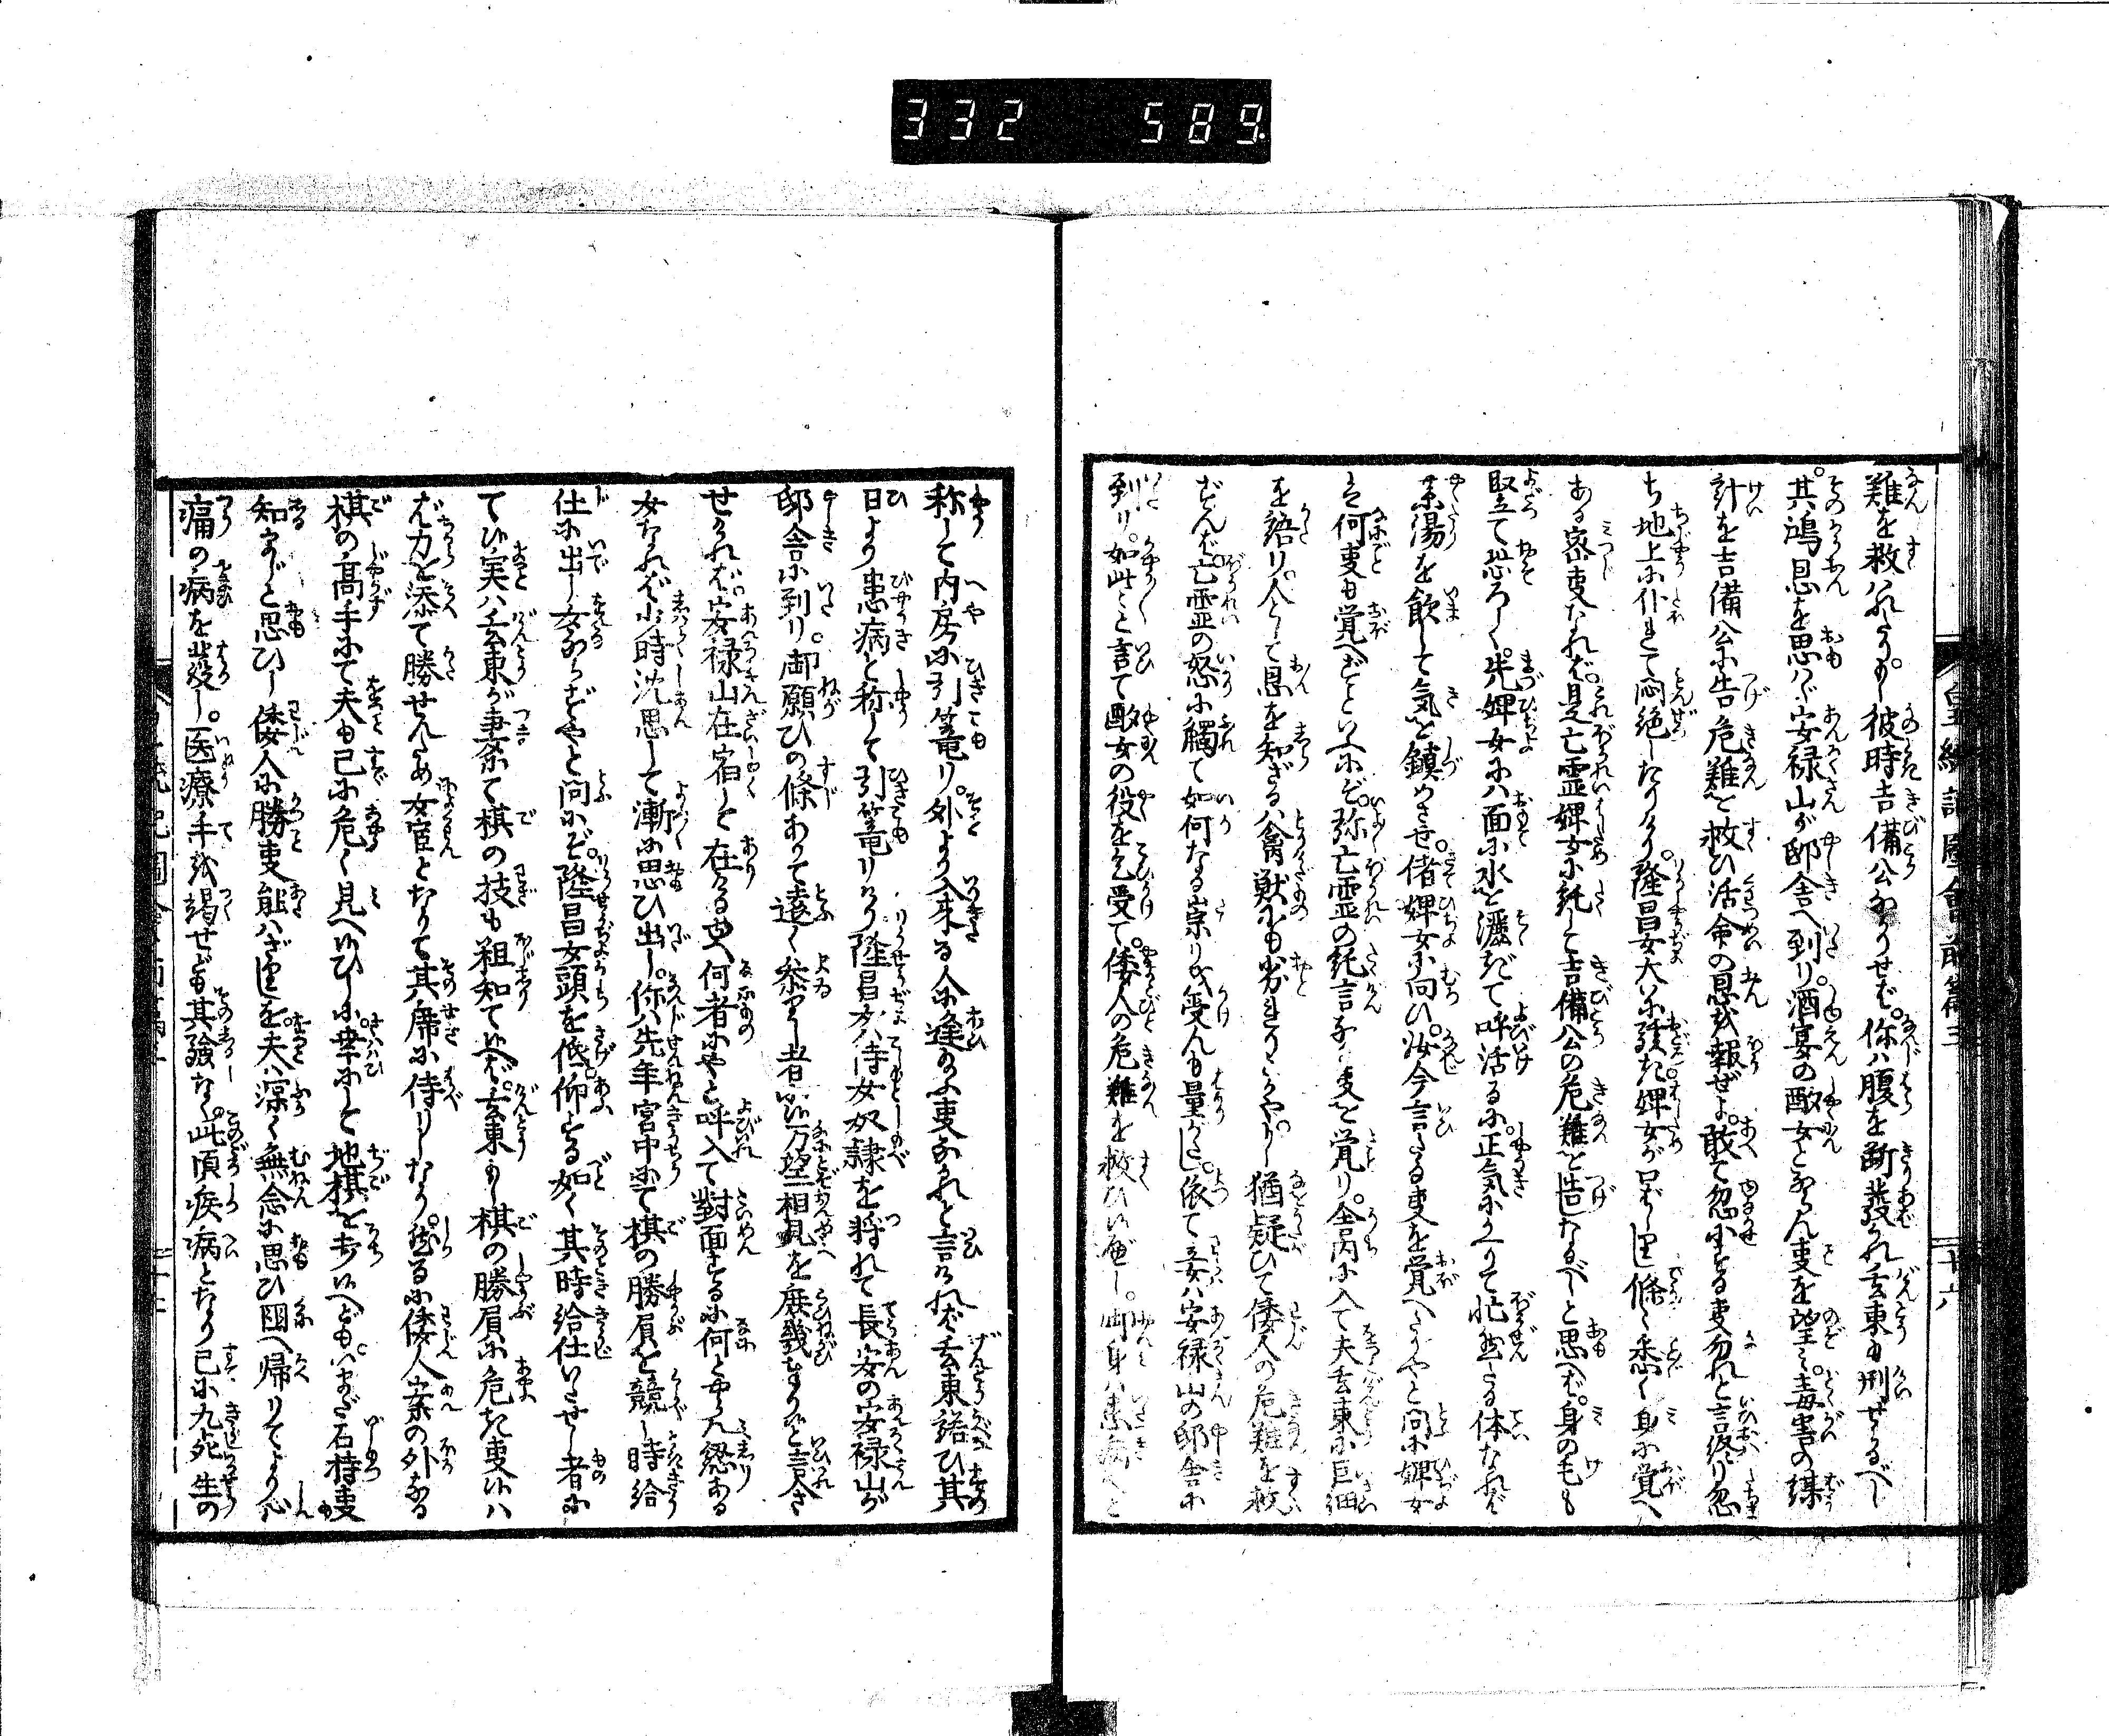 332 589.
難を救はれたり。彼時吉備公なかりせば。你は腹を断發かれ玄東も刑せらるべし
其鴻恩を思はゞ安禄山が邸舎へ到り。酒宴の酌女とならん事を望み。毒害の謀
計を吉備公に告危難を救ひ活命の恩を報ぜよ。敢て忽にする事勿れと言終り忽
ち地上に仆れて悶絶したりけり。隆昌女大に駭き婢女が口ばしる條々悉く身に覚へ
ある密事なれば。是亡霊婢女に託して吉備公の危難を告しなるべしと思へば。身の毛も
竪て恐ろしく。先婢女には面に水を灑ぎて呼活るに。正気にかへりて忙然たる体なれば
薬湯を飲して気を鎮めさせ。偖婢女に向ひ。汝今言たる事を覚へたりやと問に婢女
は何事も覚へずといふにぞ。弥亡霊の託言なる事を覚り。全内に入て夫玄東に巨細
を語り。人として恩を知ざるは禽獣にも劣れりとかや。もし猶疑ひて倭人の危難を救
ずんば。亡霊の怒に觸て如何なる祟りを受んも量がたし。依て妾は安禄山の邸舎に
到り。如此々々と言て酌女の役を乞受て。倭人の危難を救ひ候べし。御身は患病と
称して内房に引篭り。外より入来る人に逢給ふ事なかれと言ければ玄東諾ひ其
日より患病と称して引篭りけり隆昌女は侍女奴隷を将れて長安の安禄山が
邸舎に到り。御願ひの條ありて遠く参りし者に候万望相見を庶幾まうすと言入さ
せければ。安禄山在宿して在ける故何者にやと呼入て對面するに何とやらん認ある
女なれば少時沈思して漸に思ひ出し。你は先年宮中にて棋の勝屓を競し時給
仕に出し女ならずやと問にぞ。隆昌女頭を低仰する如く其時給仕いたせし者に
て候実は玄東が妻にて棋の技も粗知て候へば。玄東もし棋の勝屓に危き事候は
ば力を添て勝せんため女官となりて其席に侍りしなり。然るに倭人案の外なる
棋の高手にて夫も已に危く見へ候ひしに。幸にして地棋を歩候へども。いまだ石持事
知まじと思ひし倭人に勝事能はざりしを。夫は深く無念に思ひ国へ帰りてより心
痛の病を發し。医療手を竭せども其驗なく。此頃疾病となり已に九死一生の